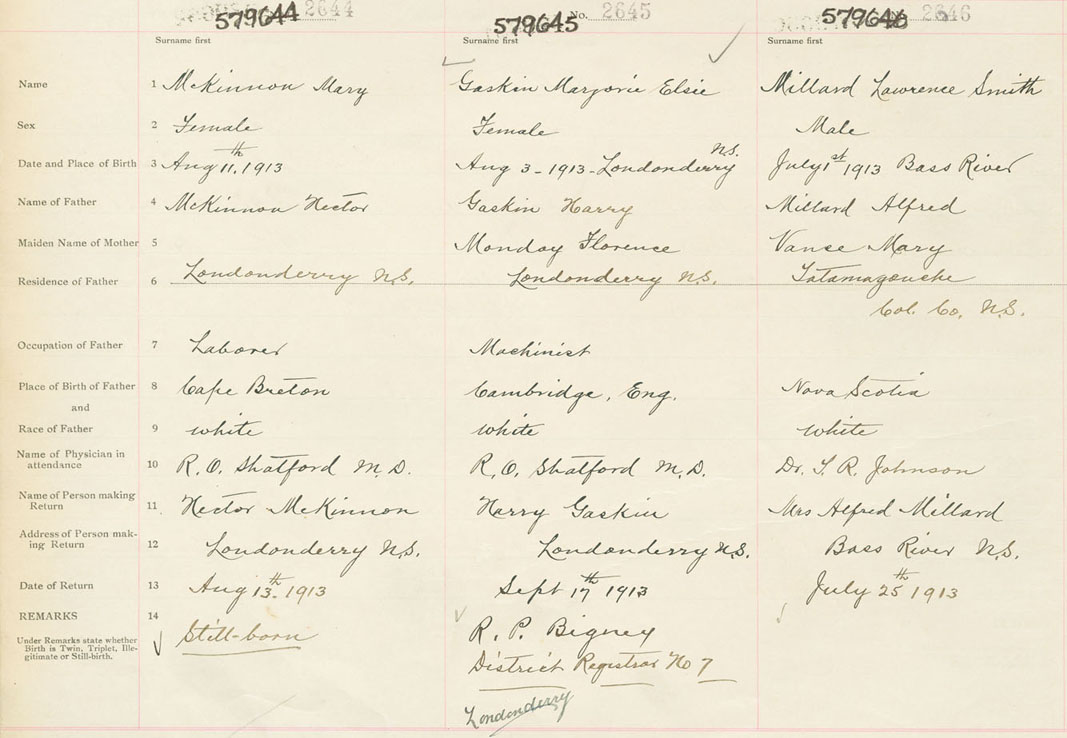 579644 2644 579645 No. 2645 579646 2646
Surname first Surname first Surname first
Name 1 McKinnon Mary Gaskin Marjorie Elsie Millard Lawrence Smith
Sex 2 Female Female Male
Date and Place of Birth 3 Aug 11th, 1913 Aug 3 - 1913 - Londonderry N.S. July 1st 1913 Bass River
Name of Father 4 McKinnon Hector Gaskin Harry Millard Alfred
Maiden Name of Mother 5 Monday Florence Vance Mary
Residence of Father 6 Londonderry N.S. Londonderry N.S. Tatamagouche
Col. Co. N.S.
Occupation of Father 7 Laborer Machinist
Place of Birth of Father 8 Cape Breton Cambridge, Eng. Nova Scotia
and
Race of Father 9 white white white
Name of Physician in
attendance 10 R.O. Shatford M.D. R.O. Shatford M.D. Dr. T. R. Johnson
Name of Person making
Return 11 Hector McKinnon Harry Gaskin Mrs Alfred Millard
Address of Person mak-
ing Return 12 Londonderry N.S. Londonderry N.S. Bass River N.S.
Date of Return 13 Aug 13th. 1913 Sept 17th 1913 July 25th 1913
REMARKS 14 Still-born R. P. Bigney
Under Remarks state whether
Birth is Twin, Triplet, Ille-
gitimate or Still-birth.
District Registrar No 7
Londonderry